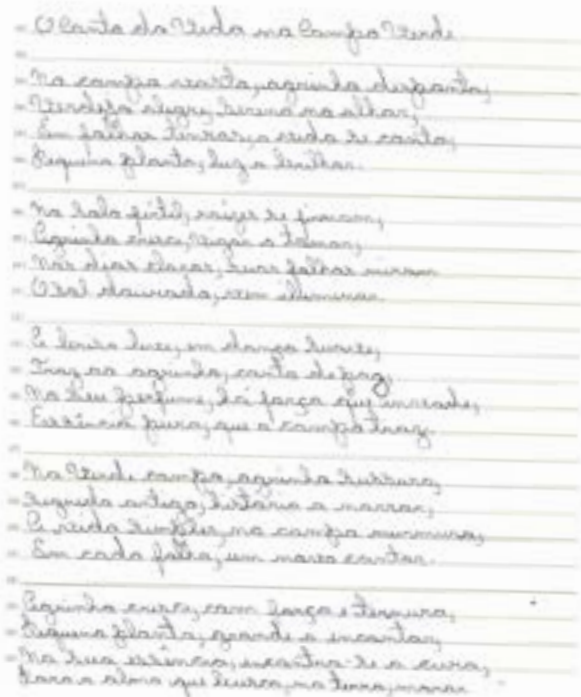 O Canto da Vida no Campo Verde
No campo vasto, aguinha desponta,
Verdeja alegre, serena no olhar,
Em folhas tenras, a vida se conta,
Pequena planta, luz a brilhar.
No solo fértil, raízes se firmam,
cresce, vigor a tomar,
Nos dias claros, suas folhas miram
O sol dourado, vem iluminar.
E brisa leve, em dança suave,
Traz ao aguinha, canto de paz,
No seu perfume, há força que invade,
Essência pura, que o campo traz.
No Verde campo, aguinha sussurra,
antigo, história a narrar,
E vida simples, no campo murmura,
Em cada folha, um novo contar.
cresce, com força e ternura,
Pequena planta, grande a encantar,
Na sua essência, encontra-se a cura,
Para a alma que busca, na terra, morar.